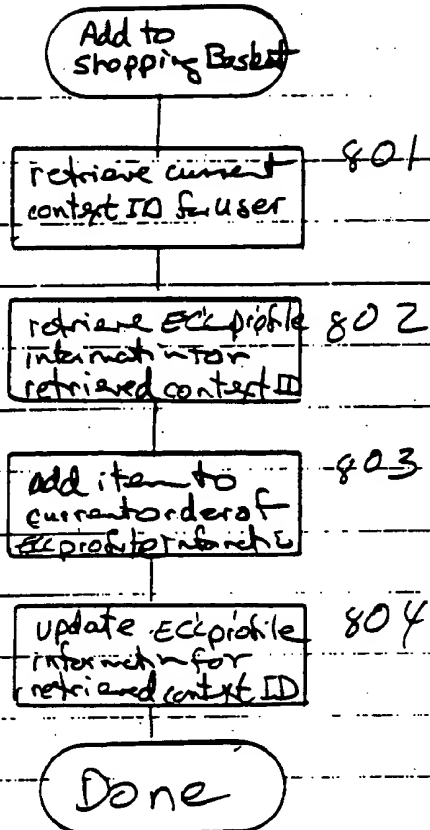 Add to
shopping Basket
801
retrieve current
context ID for user
802
retrieve ECC profile
information for
retrieved context ID
803
add item to
current order of
ECC profile information
804
update ECC profile
information for
retrieved context ID
Done